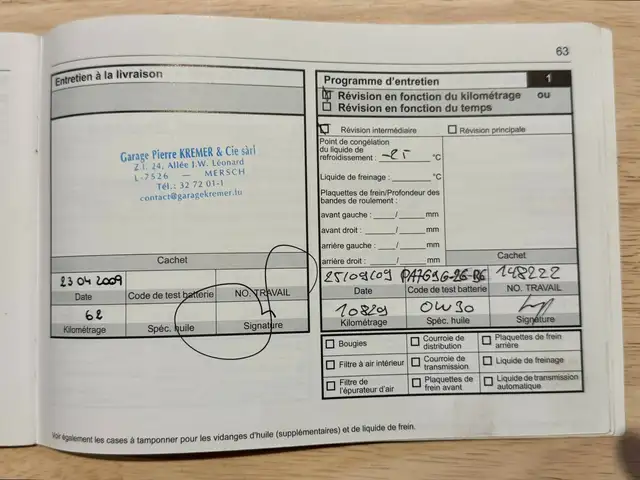 63
Entretien à la livraison
Garage Pierre KREMER & Cie sàrl
Z.I. 24, Allée J.W. Léonard
L-7526 — MERSCH
Tél.: 32 72 01-1
contact@garagekremer.lu
Cachet
23 04 2009
Date
Code de test batterie
NO. TRAVAIL
62
Kilométrage
Spéc. huile
Signature
Programme d'entretien
1
Révision en fonction du kilométrage ou
Révision en fonction du temps
Révision intermédiaire
Révision principale
Point de congélation
du liquide de
refroidissement : -25 °C
Liquide de freinage : °C
Plaquettes de frein/Profondeur des
bandes de roulement :
avant gauche : / mm
avant droit : / mm
arrière gauche : / mm
arrière droit : / mm
Cachet
25/09/09
148222
Date
Code de test batterie
NO. TRAVAIL
10829
0W30
Kilométrage
Spéc. huile
Signature
Bougies
Courroie de
distribution
Plaquettes de frein
arrière
Filtre à air intérieur
Courroie de
transmission
Liquide de freinage
Filtre de
l'épurateur d'air
Plaquettes de
frein avant
Liquide de transmission
automatique
Voir également les cases à tamponner pour les vidanges d'huile (supplémentaires) et de liquide de frein.